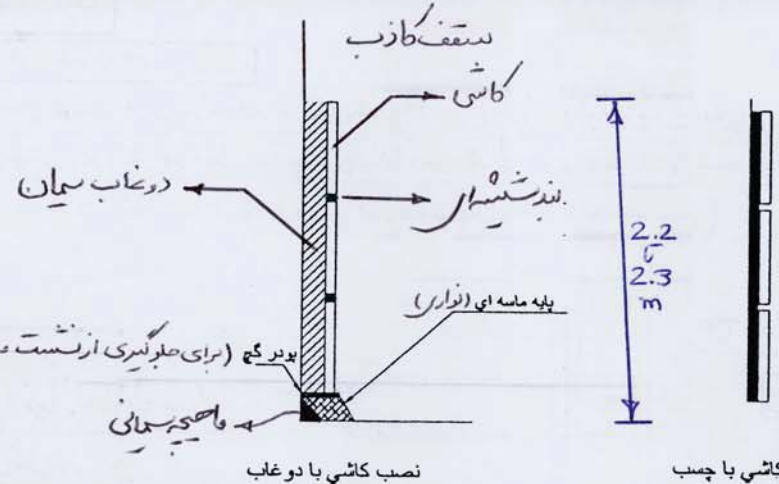 سقف کاذب
کاشی
بند شیشه ای
دوغاب سیمان
2.2
تا
2.3
m
پایه ماسه ای (نواری)
پودر گچ (برای جلوگیری از نشست
ماهیچه سیمانی
نصب کاشي با دوغاب
کاشي با چسب